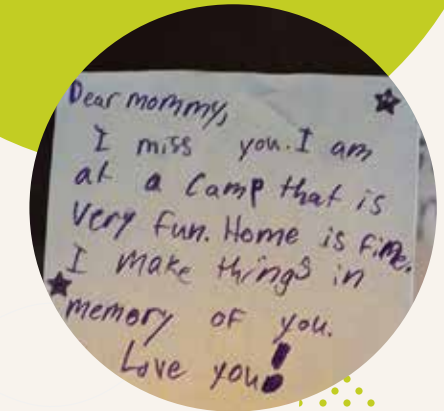 Dear mommy,
I miss you. I am
at a Camp that is
very fun. Home is fine.
I make things in
memory of you.
Love you!